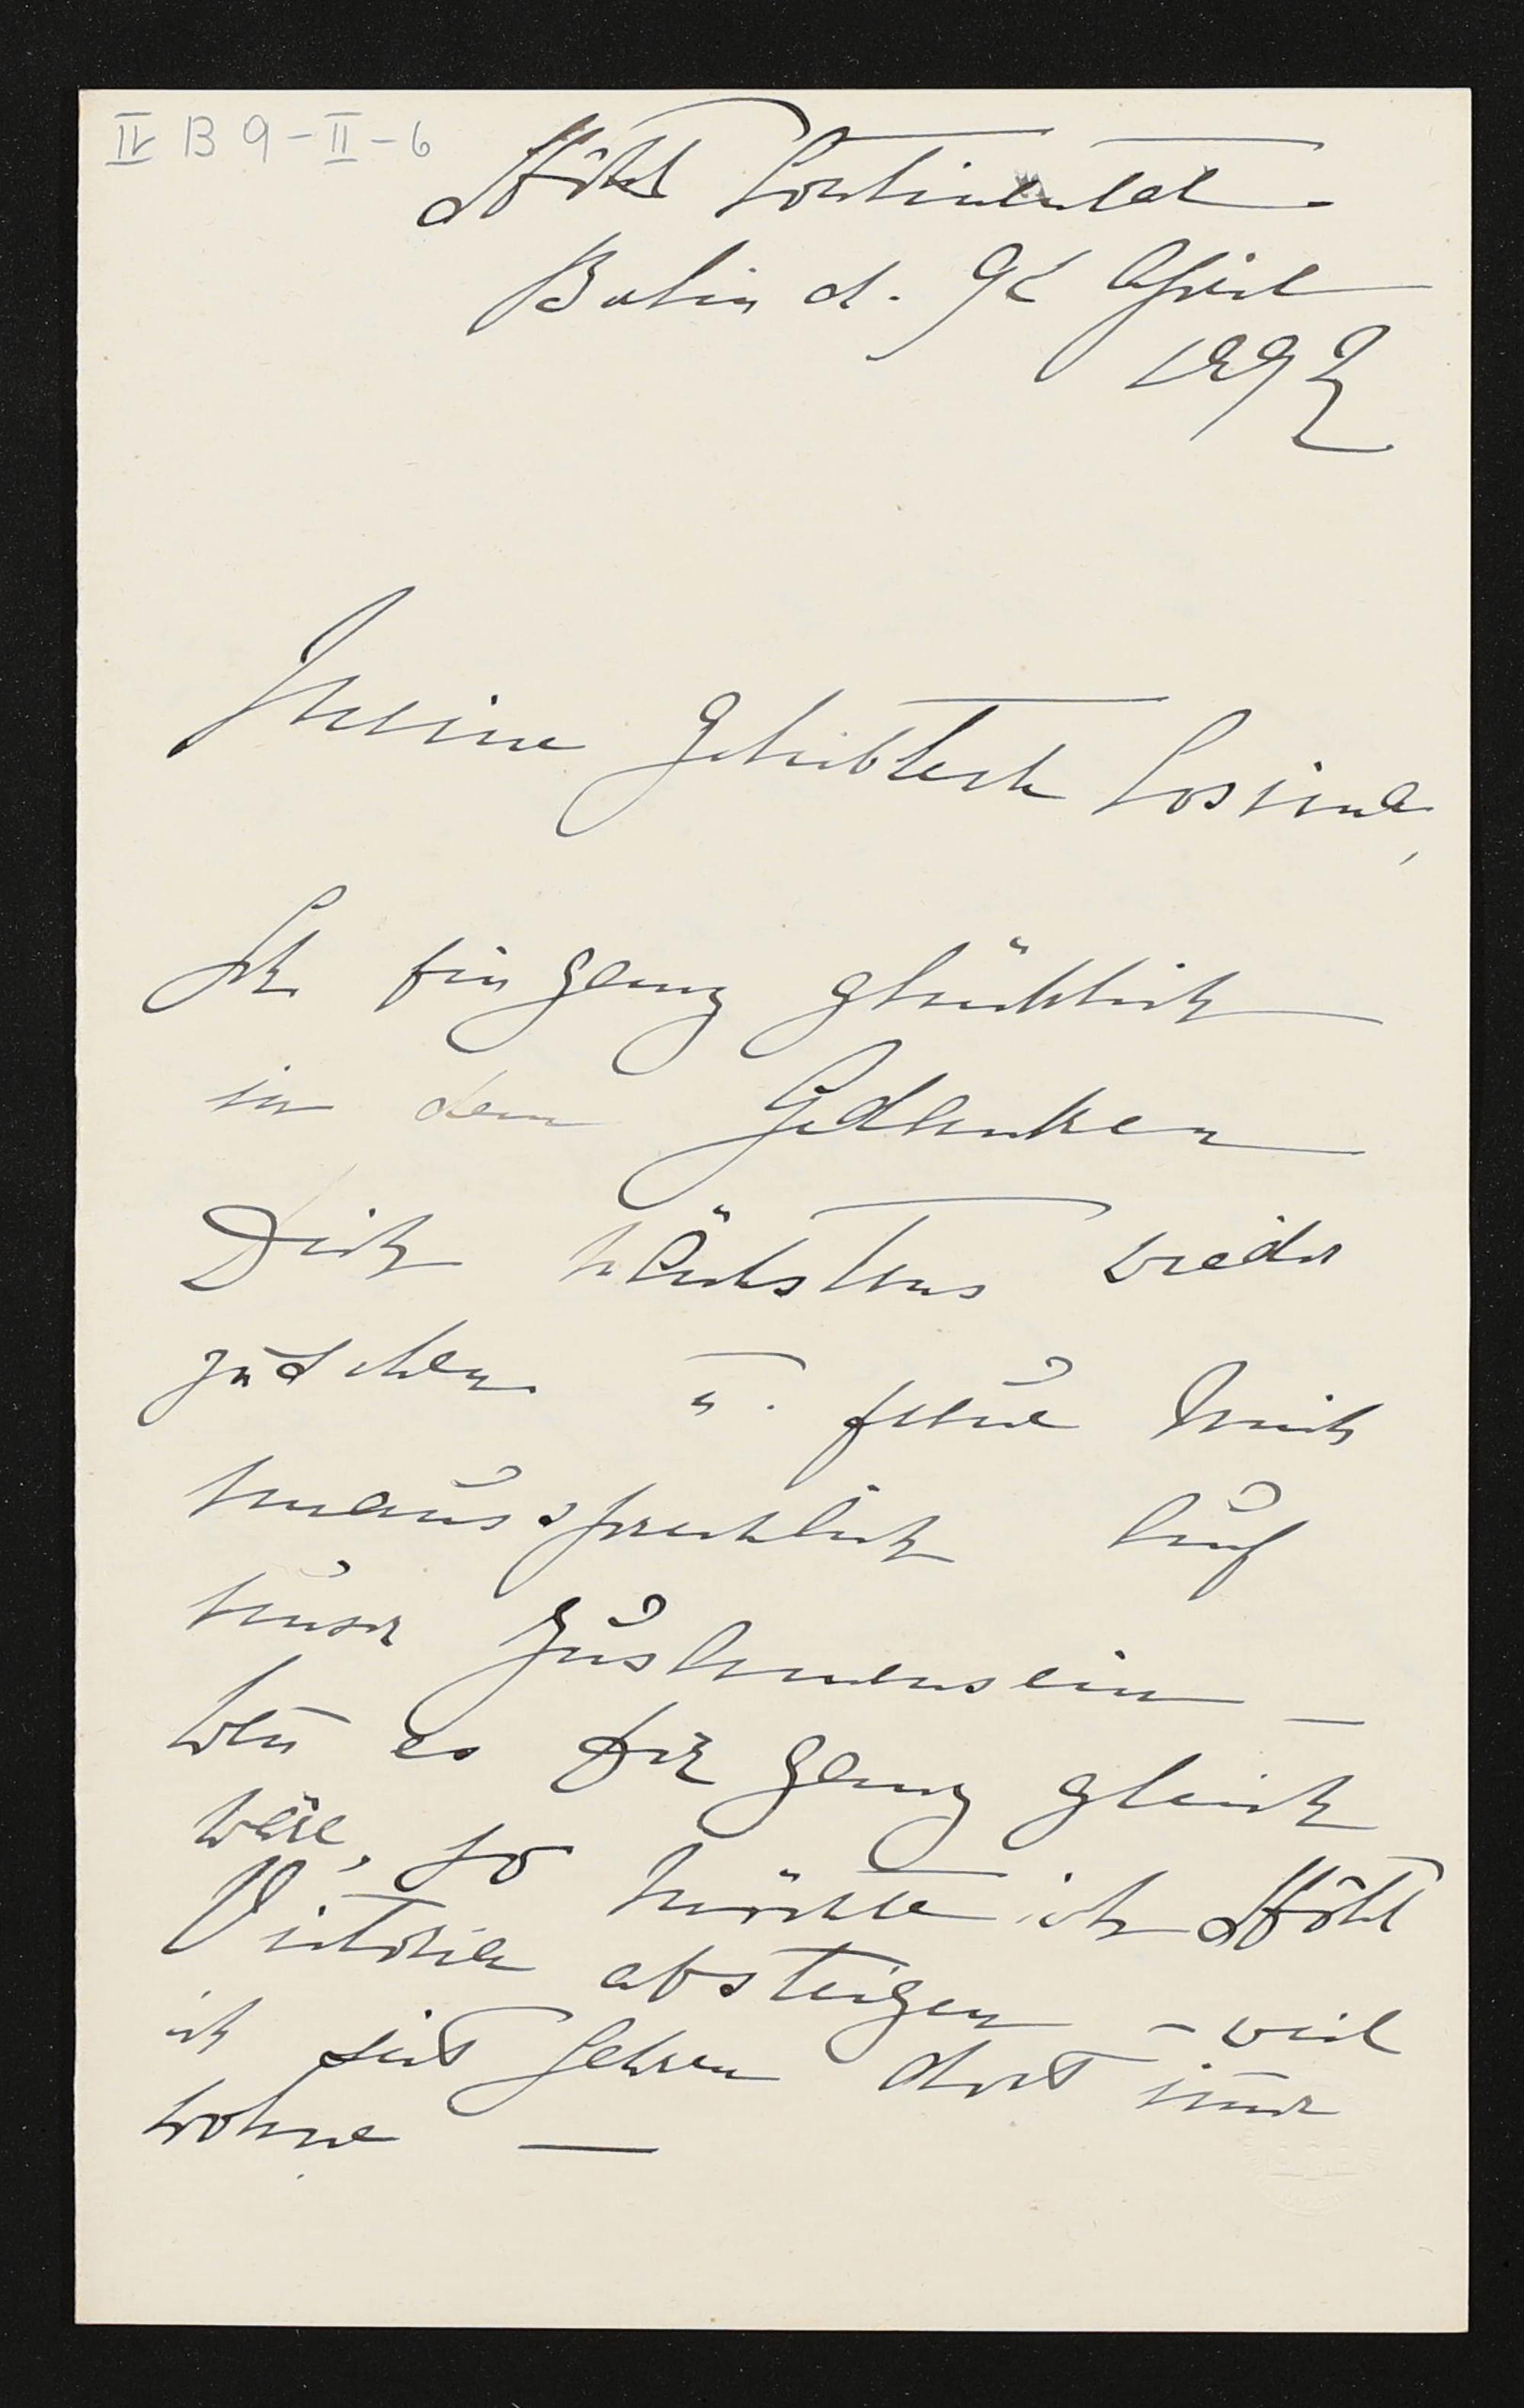 IV B 9-II-6
Hôtel Continental.
Berlin d. 9t April
1892
Meine geliebteste Cosima,
Ich bin ganz glücklich
in dem Gedanken
Dich nächstens wieder
zu sehen u. freue mich
unaussprechlich auf
unser Zusam̅ensein —
wen̅ es Dir ganz gleich
wäre, so möchte ich Hôtel
Victoria absteigen – weil
ich seit Jahren dort im̅er
wohne —